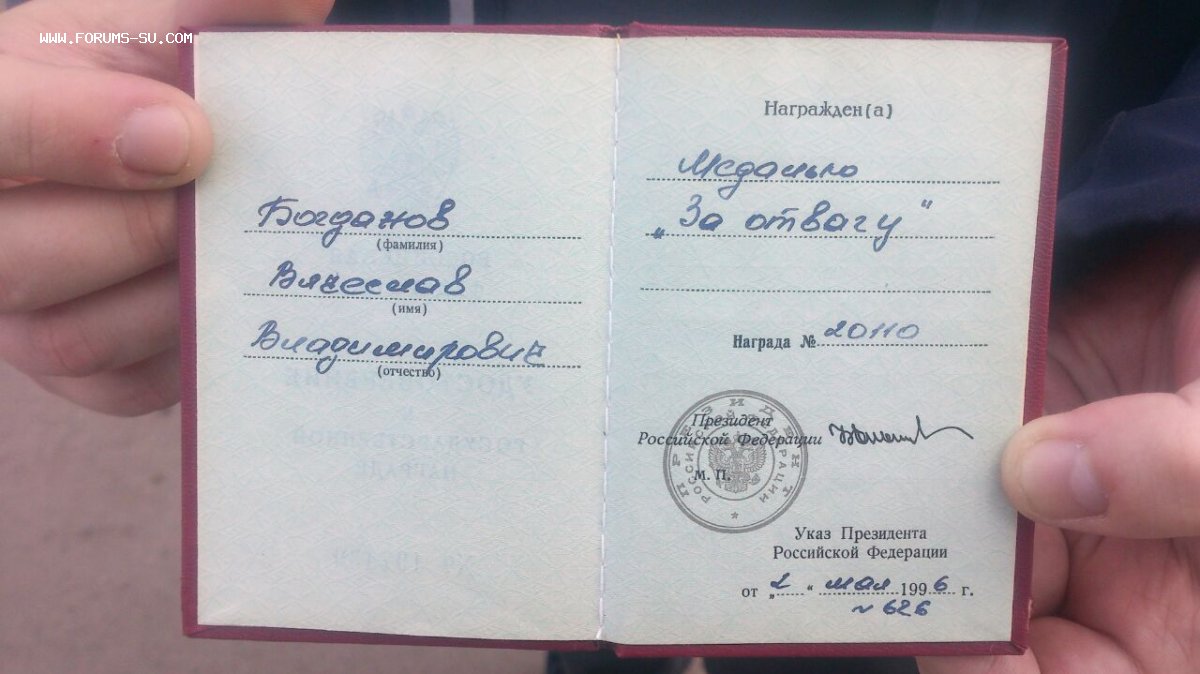 www.forums-su.com
Богданов
(фамилия)
Вячеслав
(имя)
Владимирович
(отчество)
Награжден(а)
Медалью
„За отвагу"
Награда № 20110
ПРЕЗИДЕНТ
РОССИЙСКОЙ ФЕДЕРАЦИИ
Президент
Российской Федерации
М. П.
Указ Президента
Российской Федерации
от „2" мая 1996 г.
№ 626